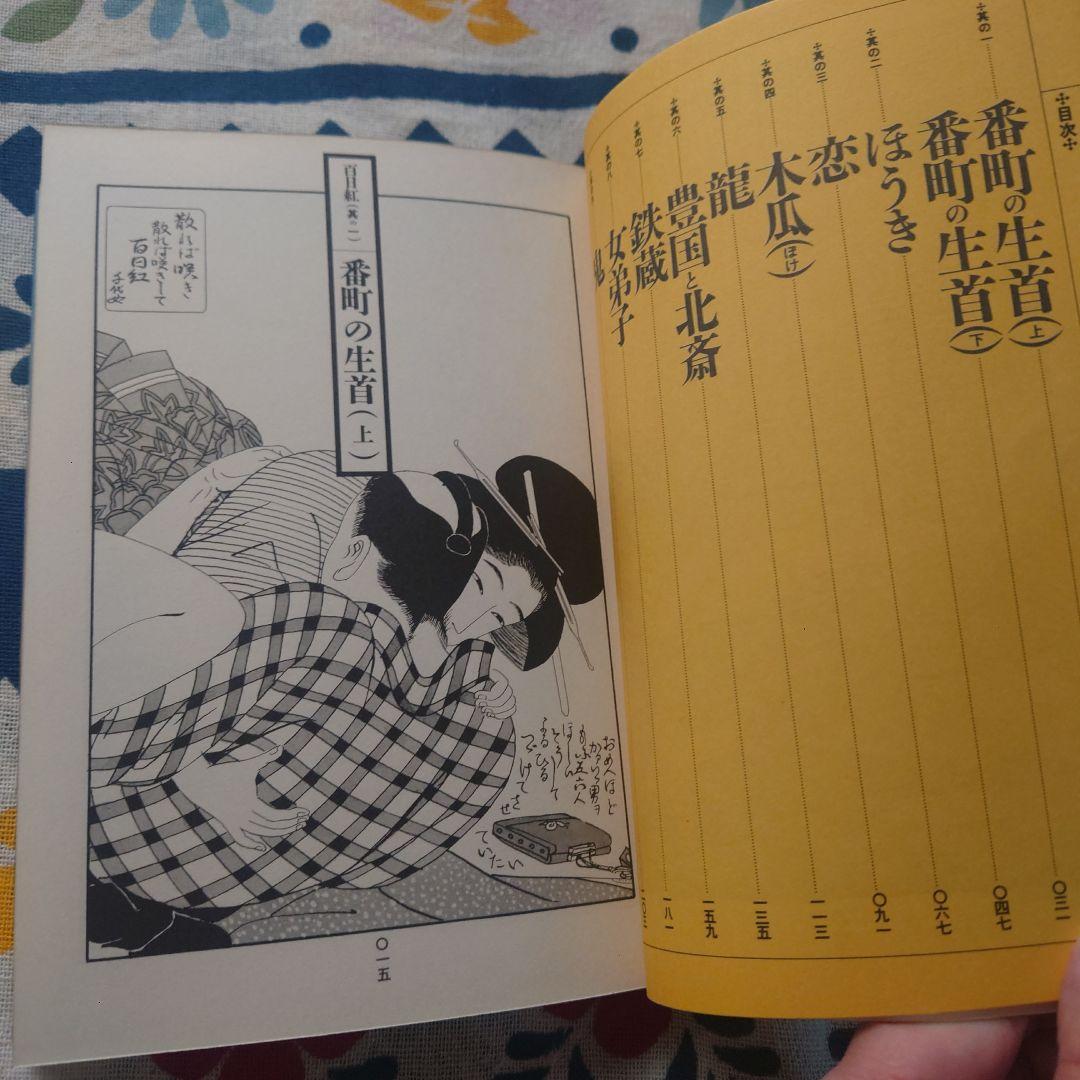 ✢目次✢
✢其の一 番町の生首(上) 〇三一
番町の生首(下) 〇四七
✢其の二 ほうき 〇六七
✢其の三 恋 〇九一
✢其の四 木瓜(ぼけ) 一一三
✢其の五 龍 一三五
✢其の六 豊国と北斎 一五九
✢其の七 鉄蔵 一八一
✢其の八 女弟子
百日紅(其の一) 番町の生首(上)
散れば咲き
散れば咲きして
百日紅
千代女
おめへほど
かわいい男ヲ
もふ五六人
ほしい
そうして
よるひる
つゞけてさ
せ
ていたい
〇一五